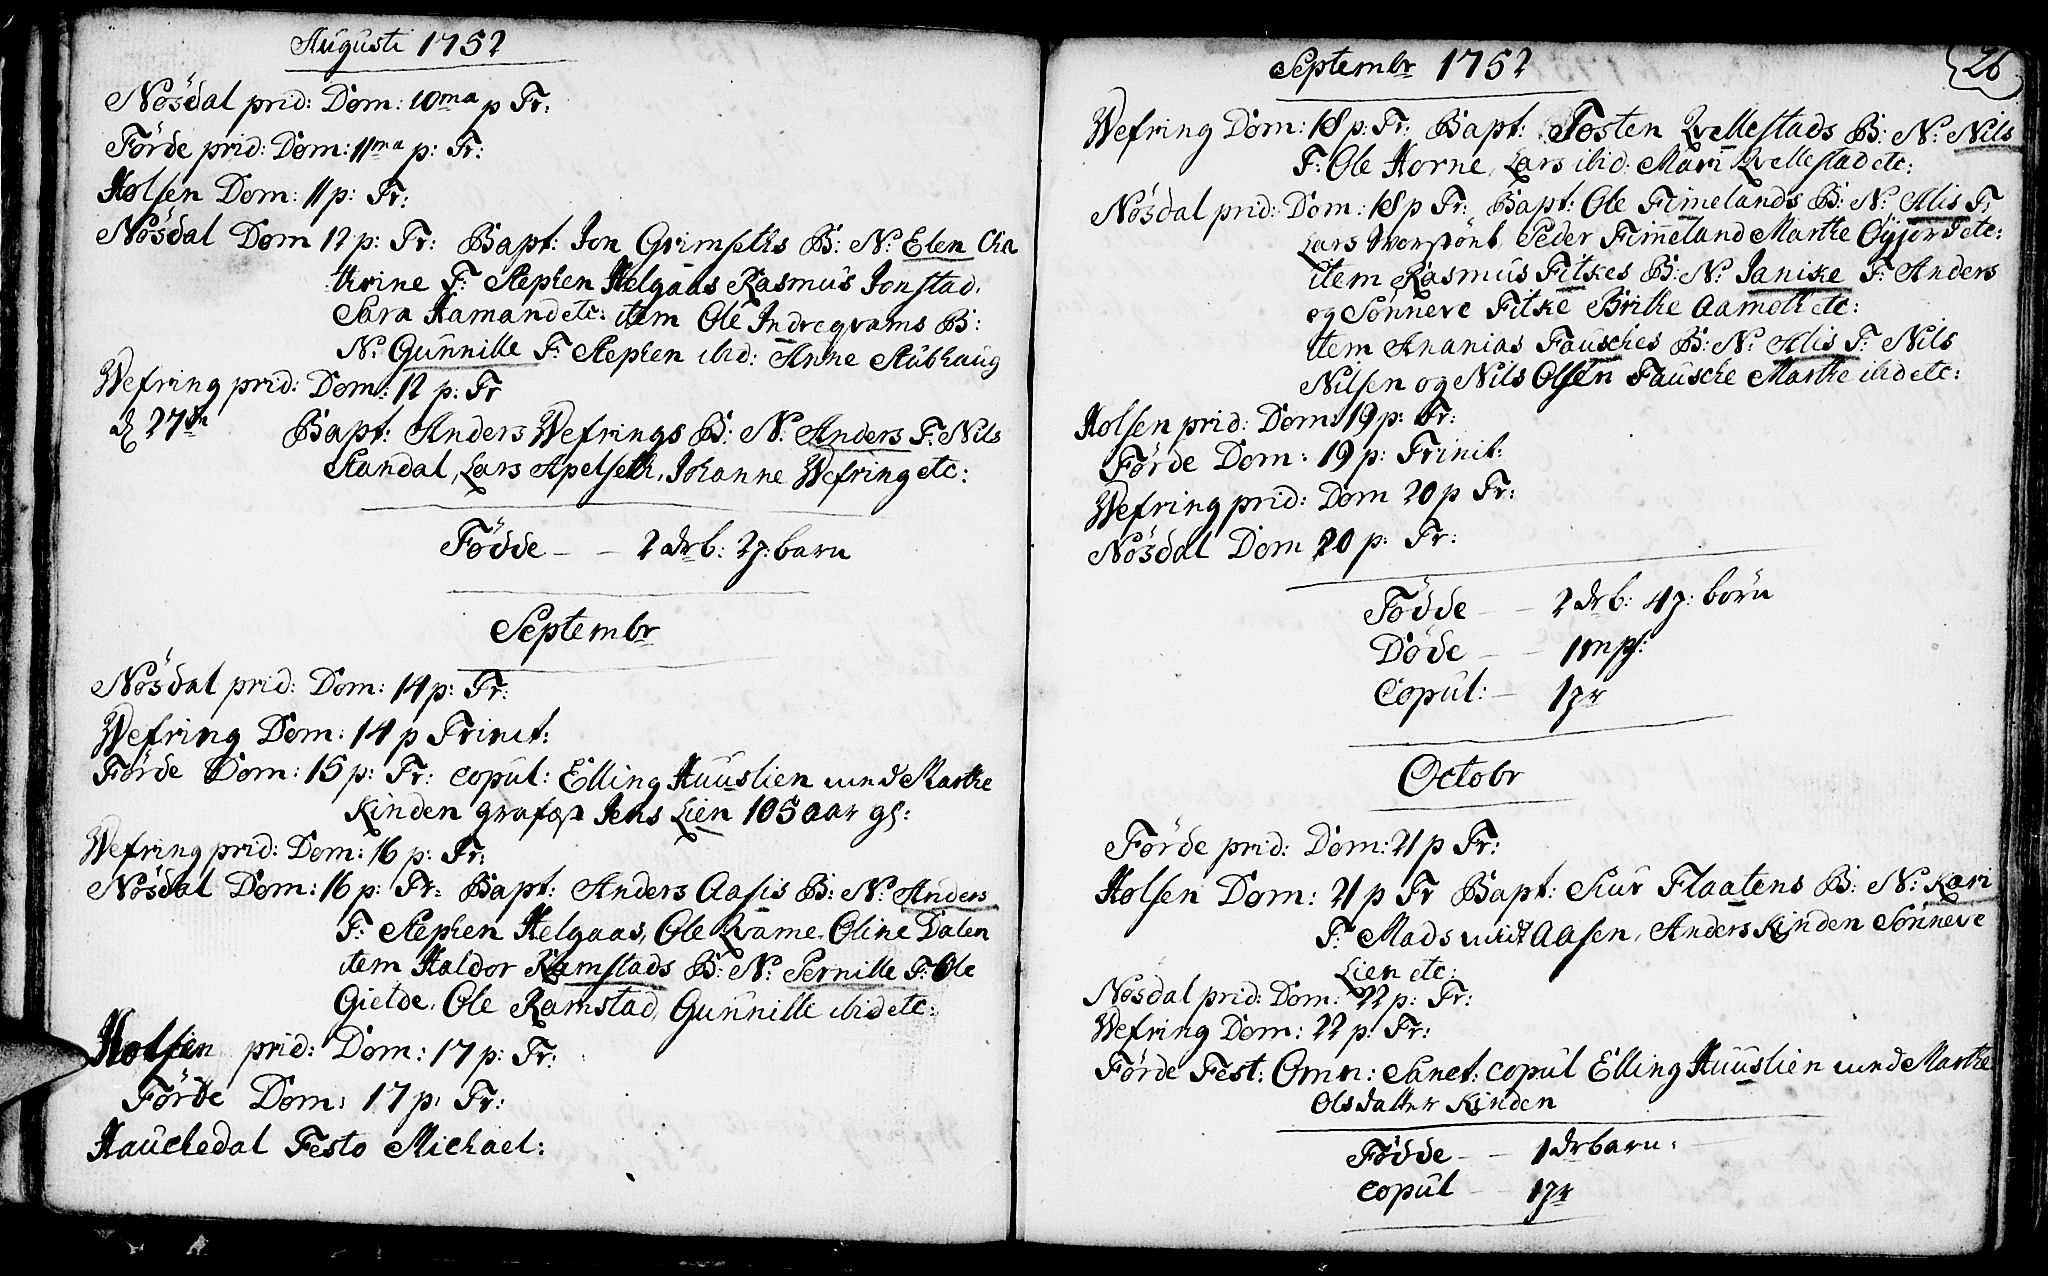 Augusti 1752
Nösdal prid: Dom: 10ma p Tr:
Förde prid: Dom: 11ma p: Tr:
Holsen Dom: 11 p: Tr:
Nösdal Dom 12 p: Tr: Bapt: Jon Grimseths B: N: Elen Cha
thrine F: Stephen Helgaas Rasmus Jonstad,
Sara Hamand etc: item Ole Indregrams B:
N: Gunnille F: Stephen ibid: Anne Stubhaug
Wefring prid: Dom: 12 p: Tr
d 27de Bapt: Anders Wefrings B: N: Anders F: Nils
Standal, Lars Apelseth, Johanne Wefring etc:
Födde - - 2 drb: 2 p: barn
Septembr
Nösdal prid: Dom: 14 p: Tr:
Wefring Dom: 14 p Trinit:
Förde Dom: 15 p: Tr: copul: Elling Huuslien med Marthe
Kinden Jens Lien 105 aar gl:
Wefring prid: Dom: 16 p: Tr:
Nösdal Dom: 16 p: Tr: Bapt: Anders Aasis B: N: Anders
F: Stephen Helgaas, Ole Qvame, Oline Dalen
item Haldor Ramstads B: N: Pernille F: Ole
Gielde, Ole Ramstad, Gunnille ibid etc:
Holsen prid: Dom: 17 p: Tr:
Förde Dom: 17 p: Tr:
Hauchedal Festo Michael:
Septembr 1752
26
Wefring Dom: 18 p: Tr: Bapt: Tosten Qvellestads B: N: Nils
F: Ole Horne, Lars ibid: Mari Qvellestad etc:
Nösdal prid: Dom: 18 p Tr: Bapt: Ole Fimelands B: N: Alis F
Lars Peder Fimeland Marthe etc:
item Rasmus Fitkes B: N: Janike F: Anders
og Sönneve Fitke Brithe Aamoth etc:
item Ananias Fausches B: N: Alis F: Nils
Nilsen og Nils Olsen Fausche Marthe ibid etc:
Holsen prid: Dom: 19 p: Tr:
Förde Dom: 19 p: Trinit:
Wefring prid: Dom 20 p Tr:
Nösdal Dom 20 p: Tr:
Födde - - 2 drb: 4 p: börn
Döde - - 1 mp:
Copul: - 1 pr
Octobr
Förde prid: Dom: 21 p Tr:
Holsen Dom: 21 p Tr Bapt: Siur Flaatens B: N: Kari
F: Mads Aasen, Anders Kinden Sönneve
Lien etc:
Nösdal prid: Dom: 22 p: Tr:
Wefring Dom: 22 p: Tr:
Förde Fest: Omn: Sanct: copul Elling Huuslien med Marthe
Olsdatter Kinden
Födde - - 1 drbarn:
Copul - - 1 pr